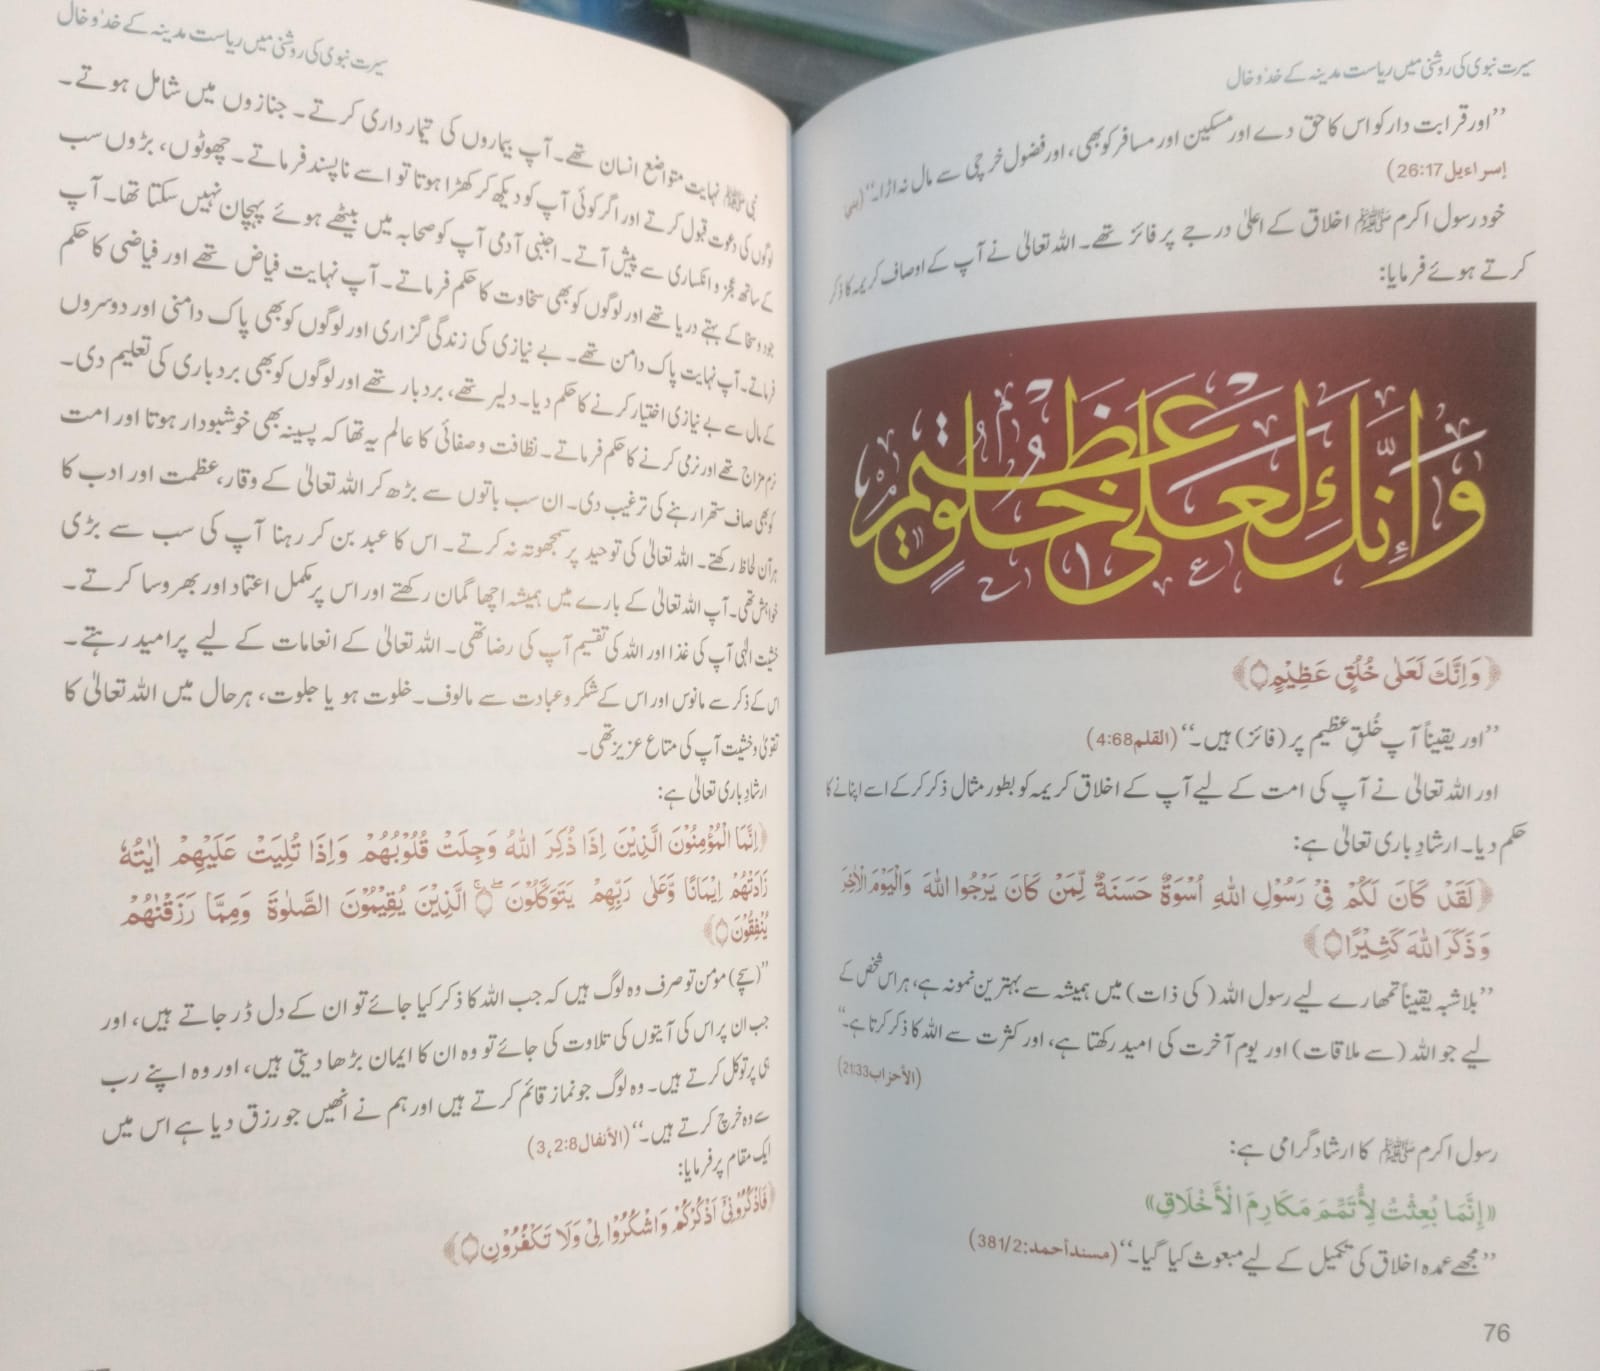 سیرت نبوی کی روشنی میں ریاست مدینہ کے خدّوخال
’’اور قرابت دار کو اس کا حق دے اور مسکین اور مسافر کو بھی، اور فضول خرچی سے مال نہ اڑا۔‘‘ (بني
إسراءيل 26:17)
خود رسول اکرم ﷺ اخلاق کے اعلیٰ درجے پر فائز تھے۔ اللہ تعالیٰ نے آپ کے اوصاف کریمہ کا ذکر
کرتے ہوئے فرمایا:
وَإِنَّكَ لَعَلَىٰ خُلُقٍ عَظِيمٍ
﴿وَاِنَّكَ لَعَلٰى خُلُقٍ عَظِيْمٍ۝﴾
’’اور یقیناً آپ خُلقِ عظیم پر (فائز) ہیں۔‘‘ (القلم 4:68)
اور اللہ تعالیٰ نے آپ کی امت کے لیے آپ کے اخلاق کریمہ کو بطور مثال ذکر کر کے اسے اپنانے کا
حکم دیا۔ ارشادِ باری تعالیٰ ہے:
﴿لَقَدْ كَانَ لَكُمْ فِيْ رَسُوْلِ اللّٰهِ اُسْوَةٌ حَسَنَةٌ لِّمَنْ كَانَ يَرْجُوا اللّٰهَ وَالْيَوْمَ الْاٰخِرَ
وَذَكَرَ اللّٰهَ كَثِيْرًا۝﴾
’’بلاشبہ یقیناً تمھارے لیے رسول اللہ (کی ذات) میں ہمیشہ سے بہترین نمونہ ہے، ہر اس شخص کے
لیے جو اللہ (سے ملاقات) اور یوم آخرت کی امید رکھتا ہے، اور کثرت سے اللہ کا ذکر کرتا ہے۔‘‘
(الأحزاب 21:33)
رسول اکرم ﷺ کا ارشاد گرامی ہے:
«إِنَّمَا بُعِثْتُ لِأُتَمِّمَ مَكَارِمَ الْأَخْلَاقِ»
’’مجھے عمدہ اخلاق کی تکمیل کے لیے مبعوث کیا گیا۔‘‘ (مسند أحمد: 381/2)
76
سیرت نبوی کی روشنی میں ریاست مدینہ کے خدّوخال
نبی ﷺ نہایت متواضع انسان تھے۔ آپ بیماروں کی تیمار داری کرتے۔ جنازوں میں شامل ہوتے۔
لوگوں کی دعوت قبول کرتے اور اگر کوئی آپ کو دیکھ کر کھڑا ہوتا تو اسے ناپسند فرماتے۔ چھوٹوں، بڑوں سب
کے ساتھ عجز و انکساری سے پیش آتے۔ اجنبی آدمی آپ کو صحابہ میں بیٹھے ہوئے پہچان نہیں سکتا تھا۔ آپ
جود و سخا کے بہتے دریا تھے اور لوگوں کو بھی سخاوت کا حکم فرماتے۔ آپ نہایت فیاض تھے اور فیاضی کا حکم
فرماتے۔ آپ نہایت پاک دامن تھے۔ بے نیازی کی زندگی گزاری اور لوگوں کو بھی پاک دامنی اور دوسروں
کے مال سے بے نیازی اختیار کرنے کا حکم دیا۔ دلیر تھے، بردبار تھے اور لوگوں کو بھی بردباری کی تعلیم دی۔
نرم مزاج تھے اور نرمی کرنے کا حکم فرماتے۔ نظافت و صفائی کا عالم یہ تھا کہ پسینہ بھی خوشبودار ہوتا اور امت
کو بھی صاف ستھرا رہنے کی ترغیب دی۔ ان سب باتوں سے بڑھ کر اللہ تعالیٰ کے وقار، عظمت اور ادب کا
ہر آن لحاظ رکھتے۔ اللہ تعالیٰ کی توحید پر سمجھوتہ نہ کرتے۔ اس کا عبد بن کر رہنا آپ کی سب سے بڑی
خواہش تھی۔ آپ اللہ تعالیٰ کے بارے میں ہمیشہ اچھا گمان رکھتے اور اس پر مکمل اعتماد اور بھروسا کرتے۔
خشیت الٰہی آپ کی غذا اور اللہ کی تقسیم آپ کی رضا تھی۔ اللہ تعالیٰ کے انعامات کے لیے پرامید رہتے۔
اس کے ذکر سے مانوس اور اس کے شکر و عبادت سے مالوف۔ خلوت ہو یا جلوت، ہر حال میں اللہ تعالیٰ کا
تقویٰ و خشیت آپ کی متاع عزیز تھی۔
ارشادِ باری تعالیٰ ہے:
﴿اِنَّمَا الْمُؤْمِنُوْنَ الَّذِيْنَ اِذَا ذُكِرَ اللّٰهُ وَجِلَتْ قُلُوْبُهُمْ وَاِذَا تُلِيَتْ عَلَيْهِمْ اٰيٰتُهٗ
زَادَتْهُمْ اِيْمَانًا وَّعَلٰى رَبِّهِمْ يَتَوَكَّلُوْنَ۝ الَّذِيْنَ يُقِيْمُوْنَ الصَّلٰوةَ وَمِمَّا رَزَقْنٰهُمْ
يُنْفِقُوْنَ۝﴾
’’(سچے) مومن تو صرف وہ لوگ ہیں کہ جب اللہ کا ذکر کیا جائے تو ان کے دل ڈر جاتے ہیں، اور
جب ان پر اس کی آیتوں کی تلاوت کی جائے تو وہ ان کا ایمان بڑھا دیتی ہیں، اور وہ اپنے رب
ہی پر توکل کرتے ہیں۔ وہ لوگ جو نماز قائم کرتے ہیں اور ہم نے انھیں جو رزق دیا ہے اس میں
سے وہ خرچ کرتے ہیں۔‘‘ (الأنفال 3,2:8)
ایک مقام پر فرمایا:
﴿فَاذْكُرُوْنِيْٓ اَذْكُرْكُمْ وَاشْكُرُوْا لِيْ وَلَا تَكْفُرُوْنِ۝﴾